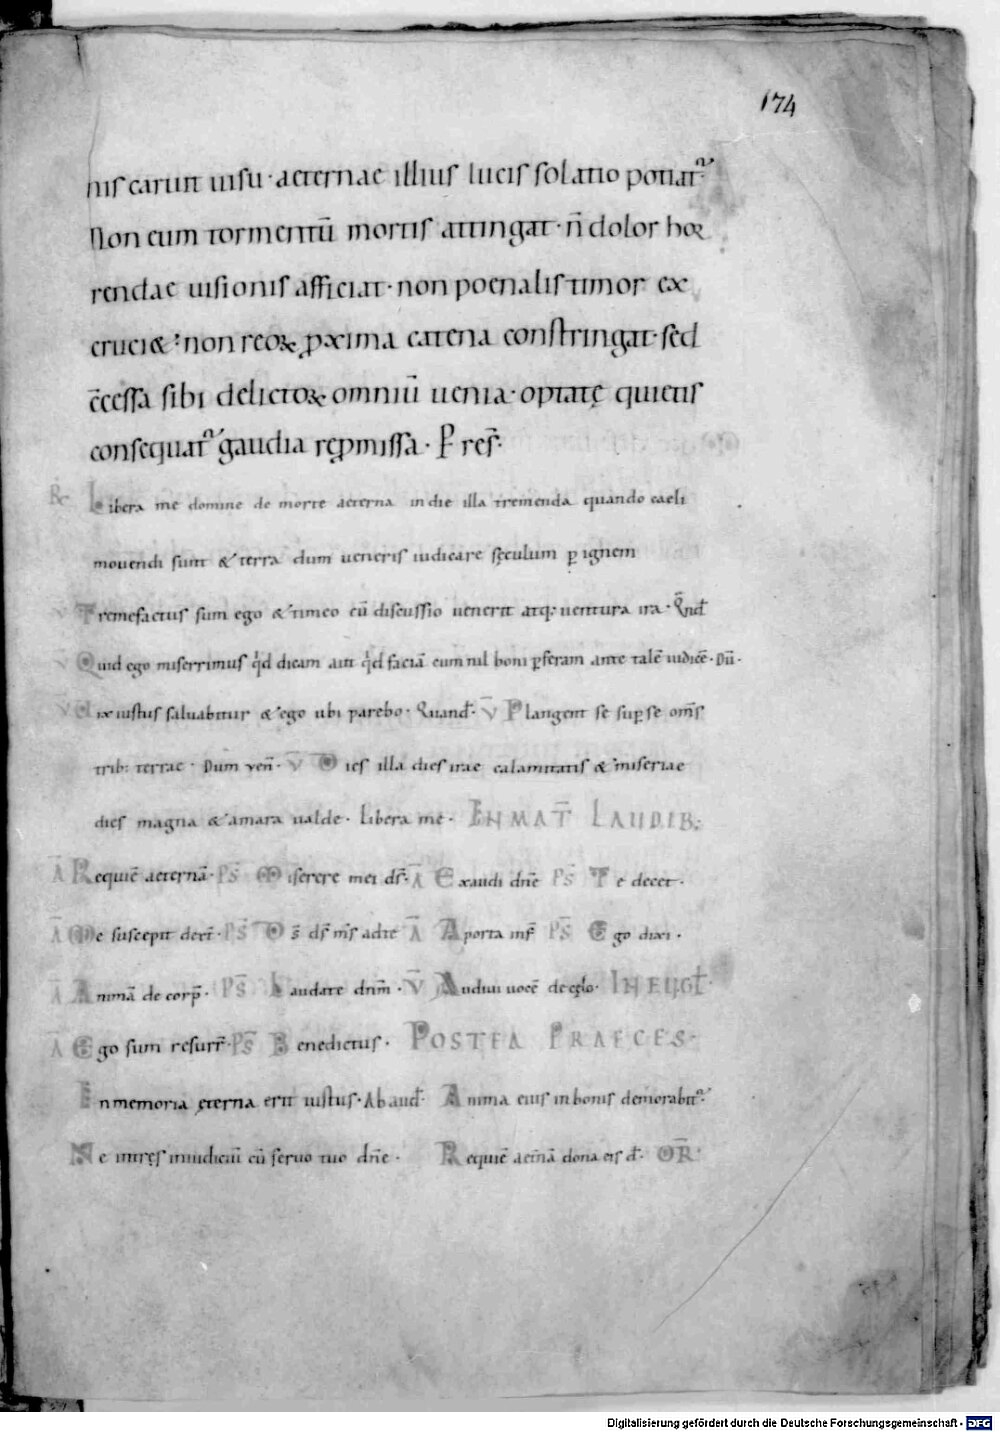 174
nis caruit uisu · aeternae illius lucis solatio potiat᷑·
Non eum tormentū mortis attingat · n̄ dolor hor
rendae uisionis afficiat · non poenalis timor ex
cruci& : non reoꝝ ꝓxima catena constringat · sed
c̄cessa sibi delictoꝝ omniū uenia · optatę quietis
consequat᷑ gaudia reꝓmissa · P res̄·
R& Libera me domine de morte aeterna in die illa tremenda quando caeli
mouendi sunt & terra dum ueneris iudicare sęculum ꝑ ignem
V Tremefactus sum ego & timeo cū discussio uenerit atq: uentura ira · Qn̄d
V Quid ego miserrimus qd dicam aut qd faciā cum nil boni ꝑferam ante talē iudicē · Dū·
V Vix iustus saluabitur & ego ubi parebo · Quand · V̄ Plangent se suꝑ se om̄s
trib: terrae · Dum ven̄ · V̄ Dies illa dies irae calamitatis & miseriae
dies magna & amara ualde · Libera me · IN MAT̄ LAUDIB;
Ā Requiē aeternā · PS̄ Miserere mei ds̄ · Ā Exaudi dn̄e PS̄ Te decet ·
Ā Me suscepit dext̄ · PS̄ Ds̄ ds̄ m̄s ad te Ā A porta inf̄ PS̄ Ego dixi ·
Ā Animā de corp̄ · PS̄ Laudate dnm̄ · V̄ Audiui uocē de cęlo · IN EUGŁ ·
Ā Ego sum resurr̄ · PS̄ Benedictus · POSTEA PRAECES ·
In memoria ęterna erit iustus · Ab aud · Anima eius in bonis demorabit᷑·
Ne intręs in iudiciū cū seruo tuo dn̄e · Requiē aet̄nā dona eis d · OR̄·
Digitalisierung gefördert durch die Deutsche Forschungsgemeinschaft - DFG